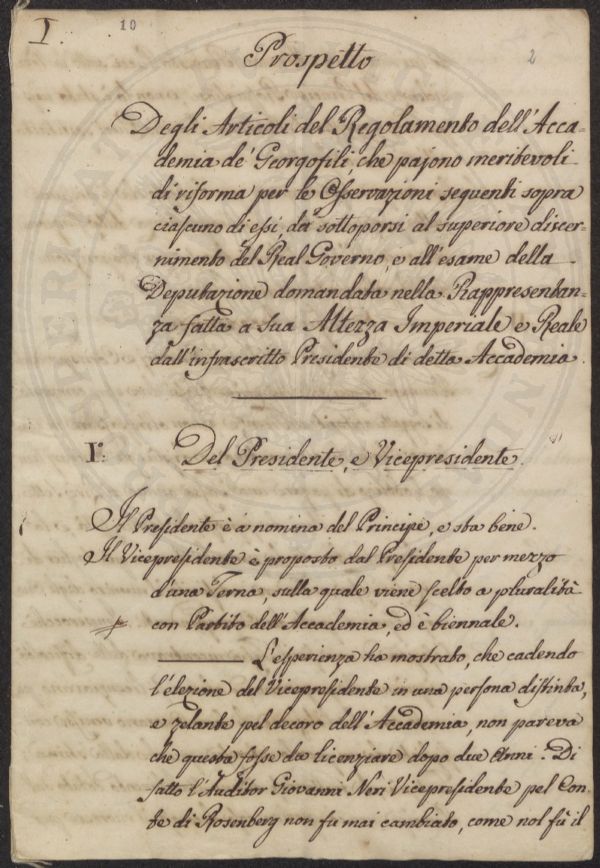 I.
10
2
Prospetto
Degli Articoli del Regolamento dell'Acca-
demia de' Georgofili, che pajono meritevoli
di riforma per le Osservazioni seguenti sopra
ciascuno di essi, da sottoporsi al superiore discer-
nimento del Real Governo, e all'esame della
Deputazione domandata nella Rappresentan-
za fatta a Sua Altezza Imperiale e Reale
dall'infrascritto Presidente di detta Accademia.
I.° Del Presidente, e Vicepresidente.
Il Presidente è a nomina del Principe, e sta bene.
Il Vicepresidente è proposto dal Presidente per mezzo
d'una Terna, sulla quale viene scelto a pluralità
con Partito dell'Accademia, ed è biennale.
L'esperienza ha mostrato, che cadendo
l'elezione del Vicepresidente in una persona distinta,
e zelante pel decoro dell'Accademia, non pareva
che questa fosse da licenziare dopo due Anni. Di
fatto l'Auditor Giovanni Neri Vicepresidente pel Con-
te di Rosenberg non fu mai cambiato, come nol fù il